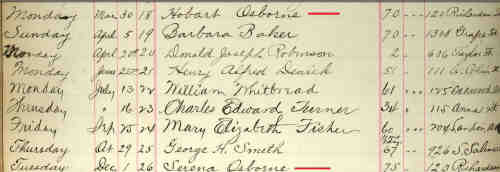 Monday Mar 30 18 Hobart Osborne 70 120 Richardson
Sunday April 5 19 Barbara Baker 70 1308 Grape St
Monday April 20 20 Donald Joseph Robinson 2 636 Taylor St
Monday June 22 21 Henry Alfred 51 111
Monday July 13 22 William Whitbread 61 125 Oakwood
Thursday " 16 23 Charles Edward Turner 34 115
Friday Sep 25 24 Mary Elizabeth Fisher 60 204
Thursday Oct 29 25 George H. Smith 67 926 S. Salina
Tuesday Dec 1 26 Serena Osborne 75 120 Richardson